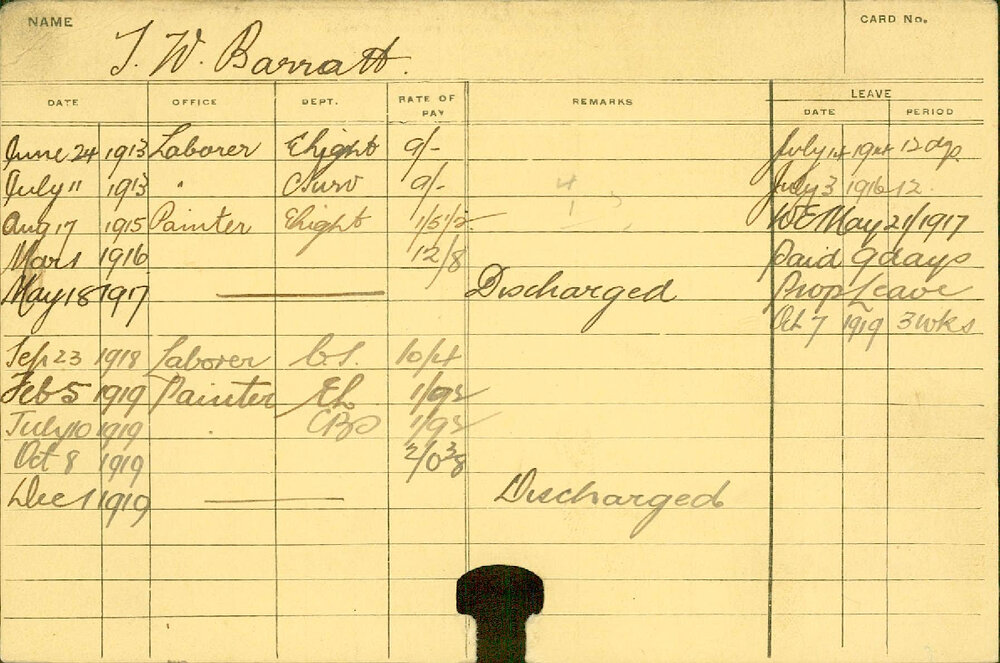 NAME
CARD No.
T. W. Barratt.
DATE OFFICE DEPT. RATE OF PAY REMARKS LEAVE
DATE PERIOD
June 24 1913 Laborer Elight 9/- July 14 1914 12 dys.
July 11 1913 " 9/- July 3 1916 12.
Aug 17 1915 Painter Elight 1/5 1/2 WE May 21/1917
Mar 1 1916 12/8 Paid 9 days
May 18 1917 Discharged Prop Leave
Oct 7 1919 3 wks
Sep 23 1918 Laborer 10/4
Feb 5 1919 Painter EL
July 10 1919
Oct 8 1919
Dec 1 1919 Discharged